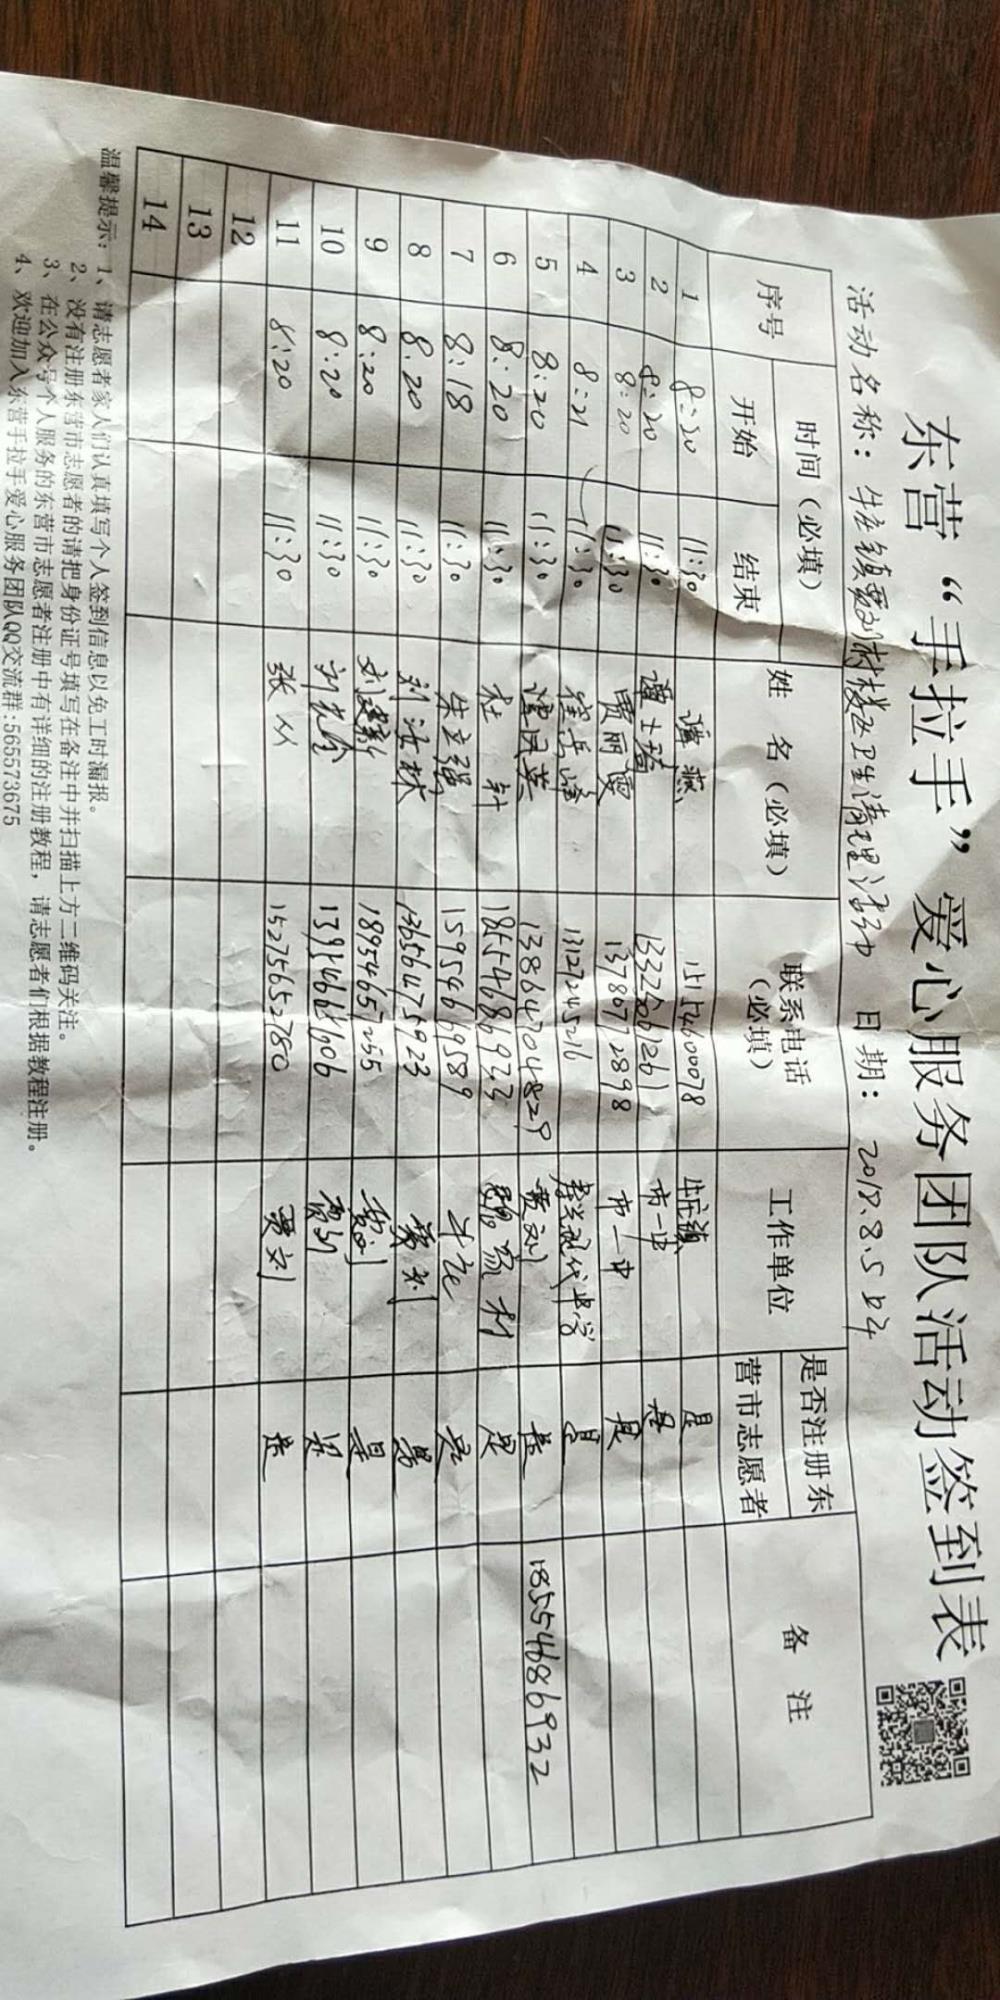 东营“手拉手”爱心服务团队活动签到表
活动名称：牛庄镇贾刘村楼区卫生清理活动 日期：2018.8.5上午
序号 时间（必填） 姓 名（必填） 联系电话（必填） 工作单位 是否注册东营市志愿者 备 注
开始 结束
1 8:20 11:30 谭燕 牛庄镇 是
2 8:20 11:30 市一中 是
3 8:20 11:30 贾丽雯 13780772898 市一中 是
4 8:21 11:30 崔岳峰 13127245216 是
5 8:20 11:30 13864704829 贾刘 是 18554686932
6 8:20 11:30 杜 18554686933 是
7 8:18 11:30 朱立强 15954669589 牛庄 是
8 8:20 11:30 刘汝林 13656475923 贾刘 是
9 8:20 11:30 刘建新 18954657255 贾刘 是
10 8:20 11:30 贾刘 是
11 8:20 11:30 张 15275652780 贾刘 是
12
13
14
温馨提示：1、请志愿者家人们认真填写个人签到信息以免工时漏报。
2、没有注册东营市志愿者的请把身份证号填写在备注中并扫描上方二维码关注。
3、在公众号个人服务的东营市志愿者注册中有详细的注册教程，请志愿者们根据教程注册。
4、欢迎加入东营手拉手爱心服务团队QQ交流群:565573675